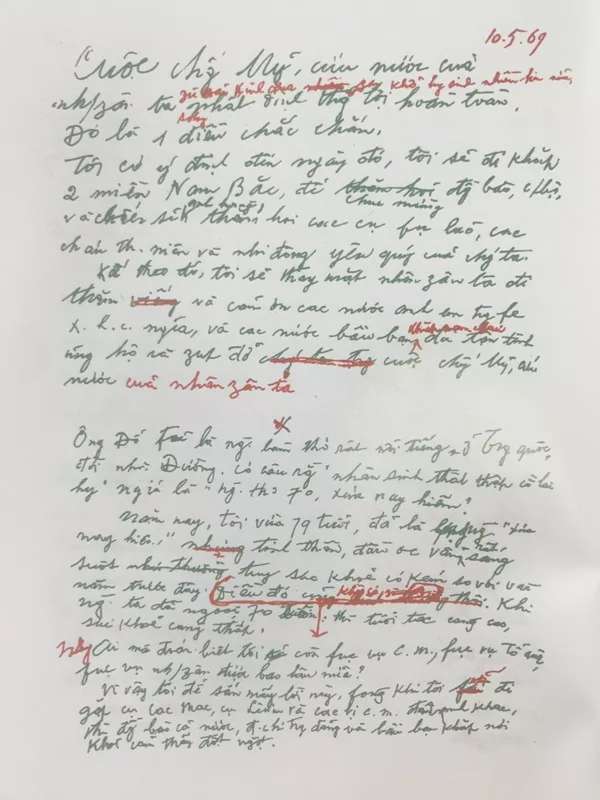 10.5.69
Cuộc chố Mỹ, cứu nước của
nh/zân ta zù phải kinh qua nhiều hy sinh nhiều hơn nữa,
phải định thg lợi hoàn toàn.
Đó là 1 điều chắc chắn.
Tôi có ý định đến ngày đó, tôi sẽ đi khắp
2 miền Nam Bắc, để chúc mừng đg bào, c/bộ,
và chiến sĩ thăm hỏi các cụ fụ lão, các
cháu th. niên và nhi đồng yêu quý của chg ta.
Kế theo đó, tôi sẽ thay mặt nhân zân ta đi
thăm và cám ơn các nước anh em trg fe
x. h. c. nghĩa, và các nước bầu bạn đã tận tình
ủng hộ và zúp đỡ cuộc chg Mỹ, cứu
nước của nhân zân ta
X
Ông Đỗ Fủ là ng. làm thơ rất nổi tiếng ở Trg quốc,
đời nhà Đường. Có câu rằng "nhân sinh thất thập cổ lai
hy" nghĩa là "ng. thọ 70, xưa nay hiếm".
Năm nay, tôi vừa 79 tuổi, đã là "xưa
nay hiếm" tinh thần, đầu óc vẫn sáng
suốt tuy sức khoẻ có kém so với vài
năm trước đây. Điều đó cũng không có zì lạ. Khi
ng. ta đã ngoài 70 thì tuổi tác càng cao,
sức khoẻ càng thấp.
Nhg Ai mà đoán biết tôi còn fục vụ C.M., fục vụ Tổ quốc,
fục vụ nh/zân được bao lâu nữa?
Vì vậy tôi để sẵn mấy lời này, fòng khi tôi đi
gặp cụ Các Mác, cụ Lênin và các vị c. m. đàn anh khác,
thì đg bào cả nước, đ. chí trg đảng và bầu bạn khắp nơi
khỏi cảm thấy đột ngột.